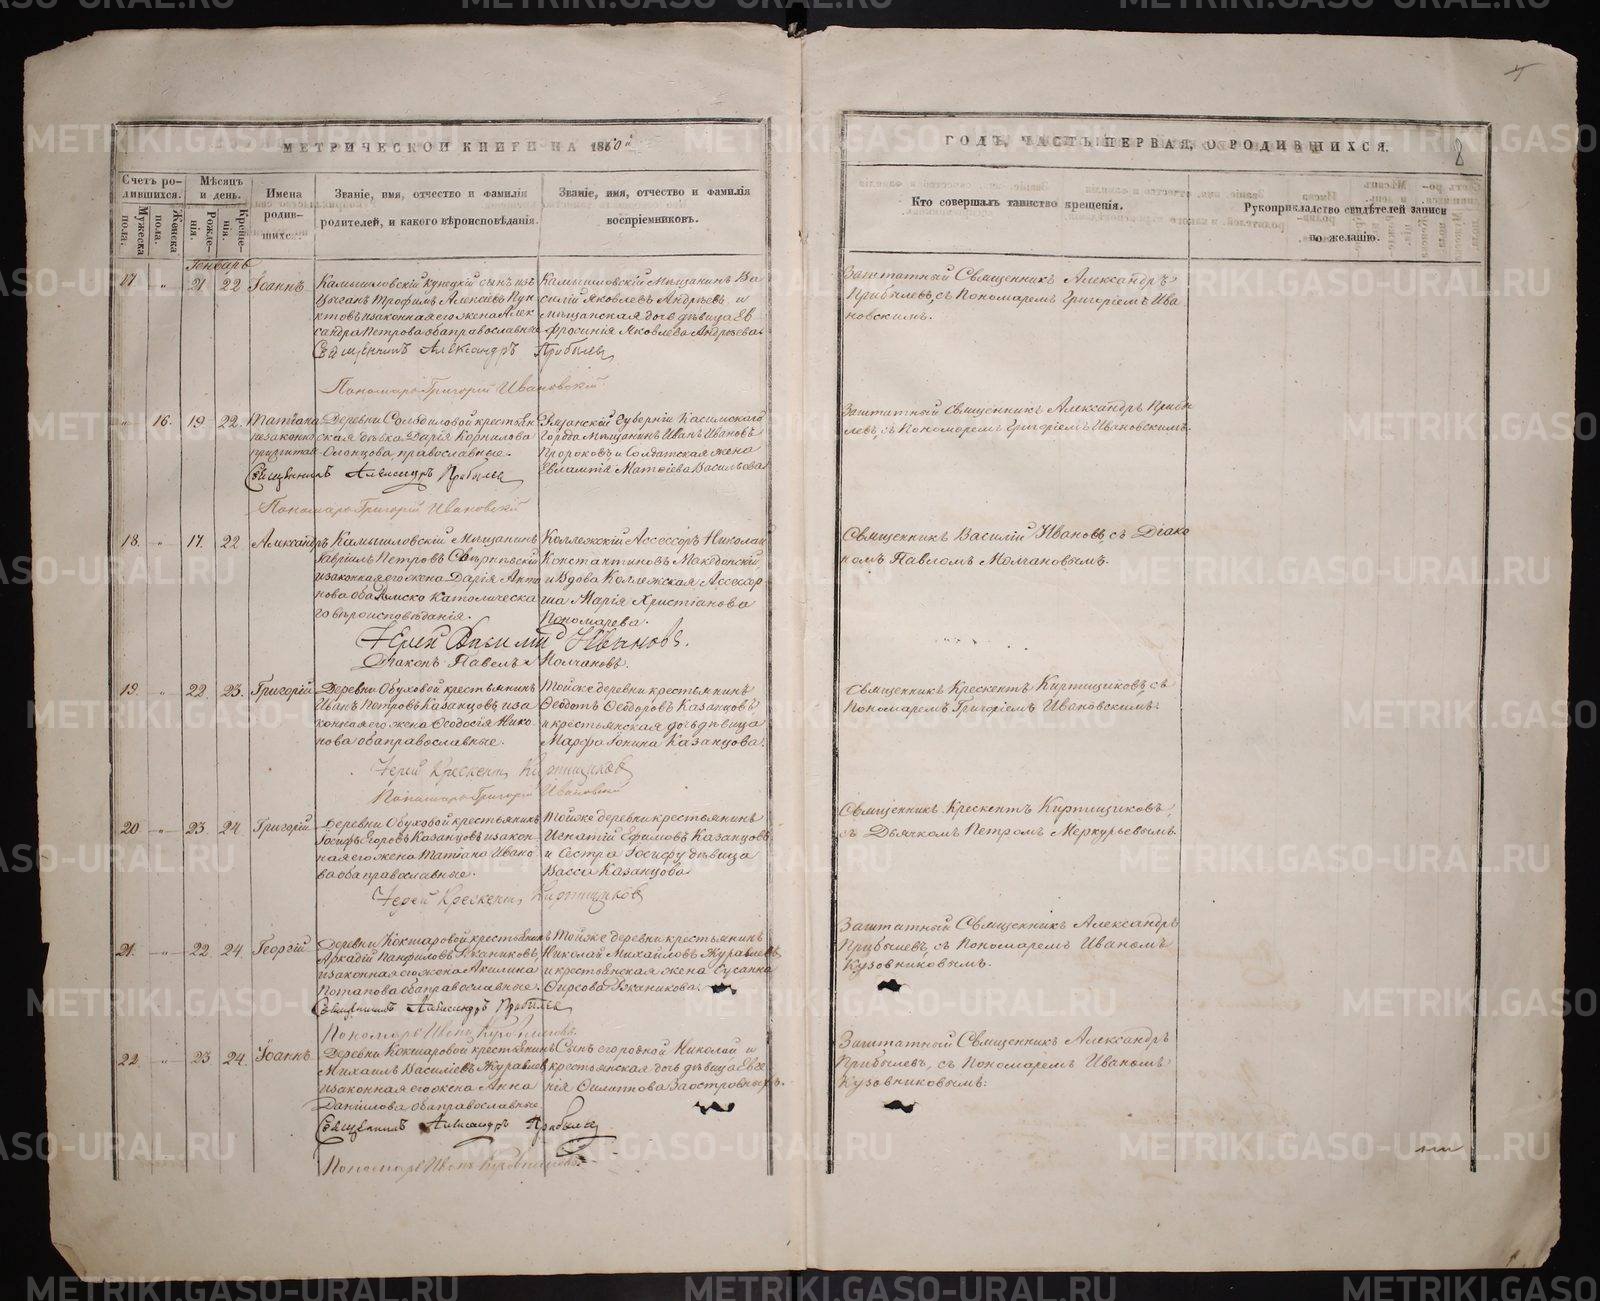 МЕТРИЧЕСКОЙ КНИГИ НА 1860й
Счетъ ро-
дившихся.
Мужеска
пола.
Женска
пола.
Мѣсяцъ
и день.
Рожде-
нія.
Креще-
нія.
Имена
родив-
шихся.
Званіе, имя, отчество и фамилія
родителей, и какого вѣроисповѣданія.
Званіе, имя, отчество и фамилія
воспріемниковъ.
Генварь
17 " 21 22 Іоаннъ
Камышловскій купецкій сынъ изъ
Цыганъ Трофимъ Алексѣевъ
и законная его жена Алек
сандра Петрова оба православные
Камышловскій Мѣщанинъ Ва
силій Яковлевъ Андрѣевъ и
мѣщанская дочь дѣвица Ев
фросинія Яковлева Андрѣева.
Священникъ Александръ Прибылев
Пономарь Григорій Ивановскій
" 16. 19 22. Татіана
незаконно
прижитая
Деревни крестьян
ская дѣвка Дарія Корнилова
православные.
Рязанской Губерніи Касимского
города Мѣщанинъ Иванъ Ивановъ
Пророковъ и Солдатская жена
Евлампія Матвіева Васильева
Священникъ Александръ Прибылев
Пономарь Григорій Ивановскій
18. " 17. 22 Александръ
Камышловскій Мѣщанинъ
Гавріилъ Петровъ
и законная его жена Дарія Анто
нова оба Римско Католическа
го вѣроисповѣданія.
Коллежскій Ассессоръ Николай
Константиновъ Македонскій
и Вдова Коллежская Ассессор
ша Марія Христіанова
Пономарева.
Іерей Василій Ивановъ.
Діаконъ Павелъ Молчановъ.
19. " 22. 23. Григорій
Деревни Обуховой крестьянинъ
Иванъ Петровъ Казанцовъ и за
конная его жена Ѳеодосія Нико
нова оба православные.
Тойже деревни крестьянинъ
Ѳеодотъ Ѳеодоровъ Казанцовъ
и крестьянская дочь дѣвица
Марфа Іонина Казанцова.
Іерей Крескентъ Киртищиковъ
Пономарь Григорій Ивановскій
20 " 23. 24 Григорій
Деревни Обуховой крестьянинъ
Іосифъ Егоровъ Казанцовъ и закон
ная его жена Татіана Ивано
ва оба православные.
Тойже деревни крестьянинъ
Игнатій Ефимовъ Казанцовъ
и Сестра Іосифу дѣвица
Васса Казанцова
Іерей Крескентъ Киртищиковъ
21. " 22. 24. Георгій
Деревни Кокшаровой крестьянинъ
Аркадій Панфиловъ
и законная его жена Акилина
Потапова оба православные.
Тойже деревни крестьянинъ
Николай Михайловъ Журавлевъ
и крестьянская жена Сусанна
Фирсова
Священникъ Александръ Прибылев
Пономарь Иванъ Кузовниковъ.
22. " 23 24. Іоаннъ
Деревни Кокшаровой крестьянинъ
Михаилъ Василіевъ Журавлевъ
и законная его жена Анна
Даниилова оба православные
Сынъ его родной Николай и
крестьянская дочь дѣвица Евге
нія Филиппова
Священникъ Александръ Прибылев
Пономарь Иванъ Кузовниковъ.
ГОДЪ, ЧАСТЬ ПЕРВАЯ, О РОДИВШИХСЯ.
8
Кто совершалъ таинство крещенія.
Рукоприкладство свидѣтелей записи
по желанію.
Заштатный Священникъ Александръ
Прибылевъ, съ Пономаремъ Григоріемъ Ива
новскимъ.
Заштатный Священникъ Александръ Прибы
левъ, съ Пономаремъ Григоріемъ Ивановскимъ.
Священникъ Василій Ивановъ, съ Діако
номъ Павломъ Молчановымъ.
Священникъ Крескентъ Киртищиковъ, съ
Пономаремъ Григоріемъ Ивановскимъ.
Священникъ Крескентъ Киртищиковъ,
съ Дьячкомъ Петромъ Меркурьевымъ.
Заштатный Священникъ Александръ
Прибылевъ, съ Пономаремъ Иваномъ
Кузовниковымъ.
Заштатный Священникъ Александръ
Прибылевъ, съ Пономаремъ Иваномъ
Кузовниковымъ.
METRIKI.GASO-URAL.RU